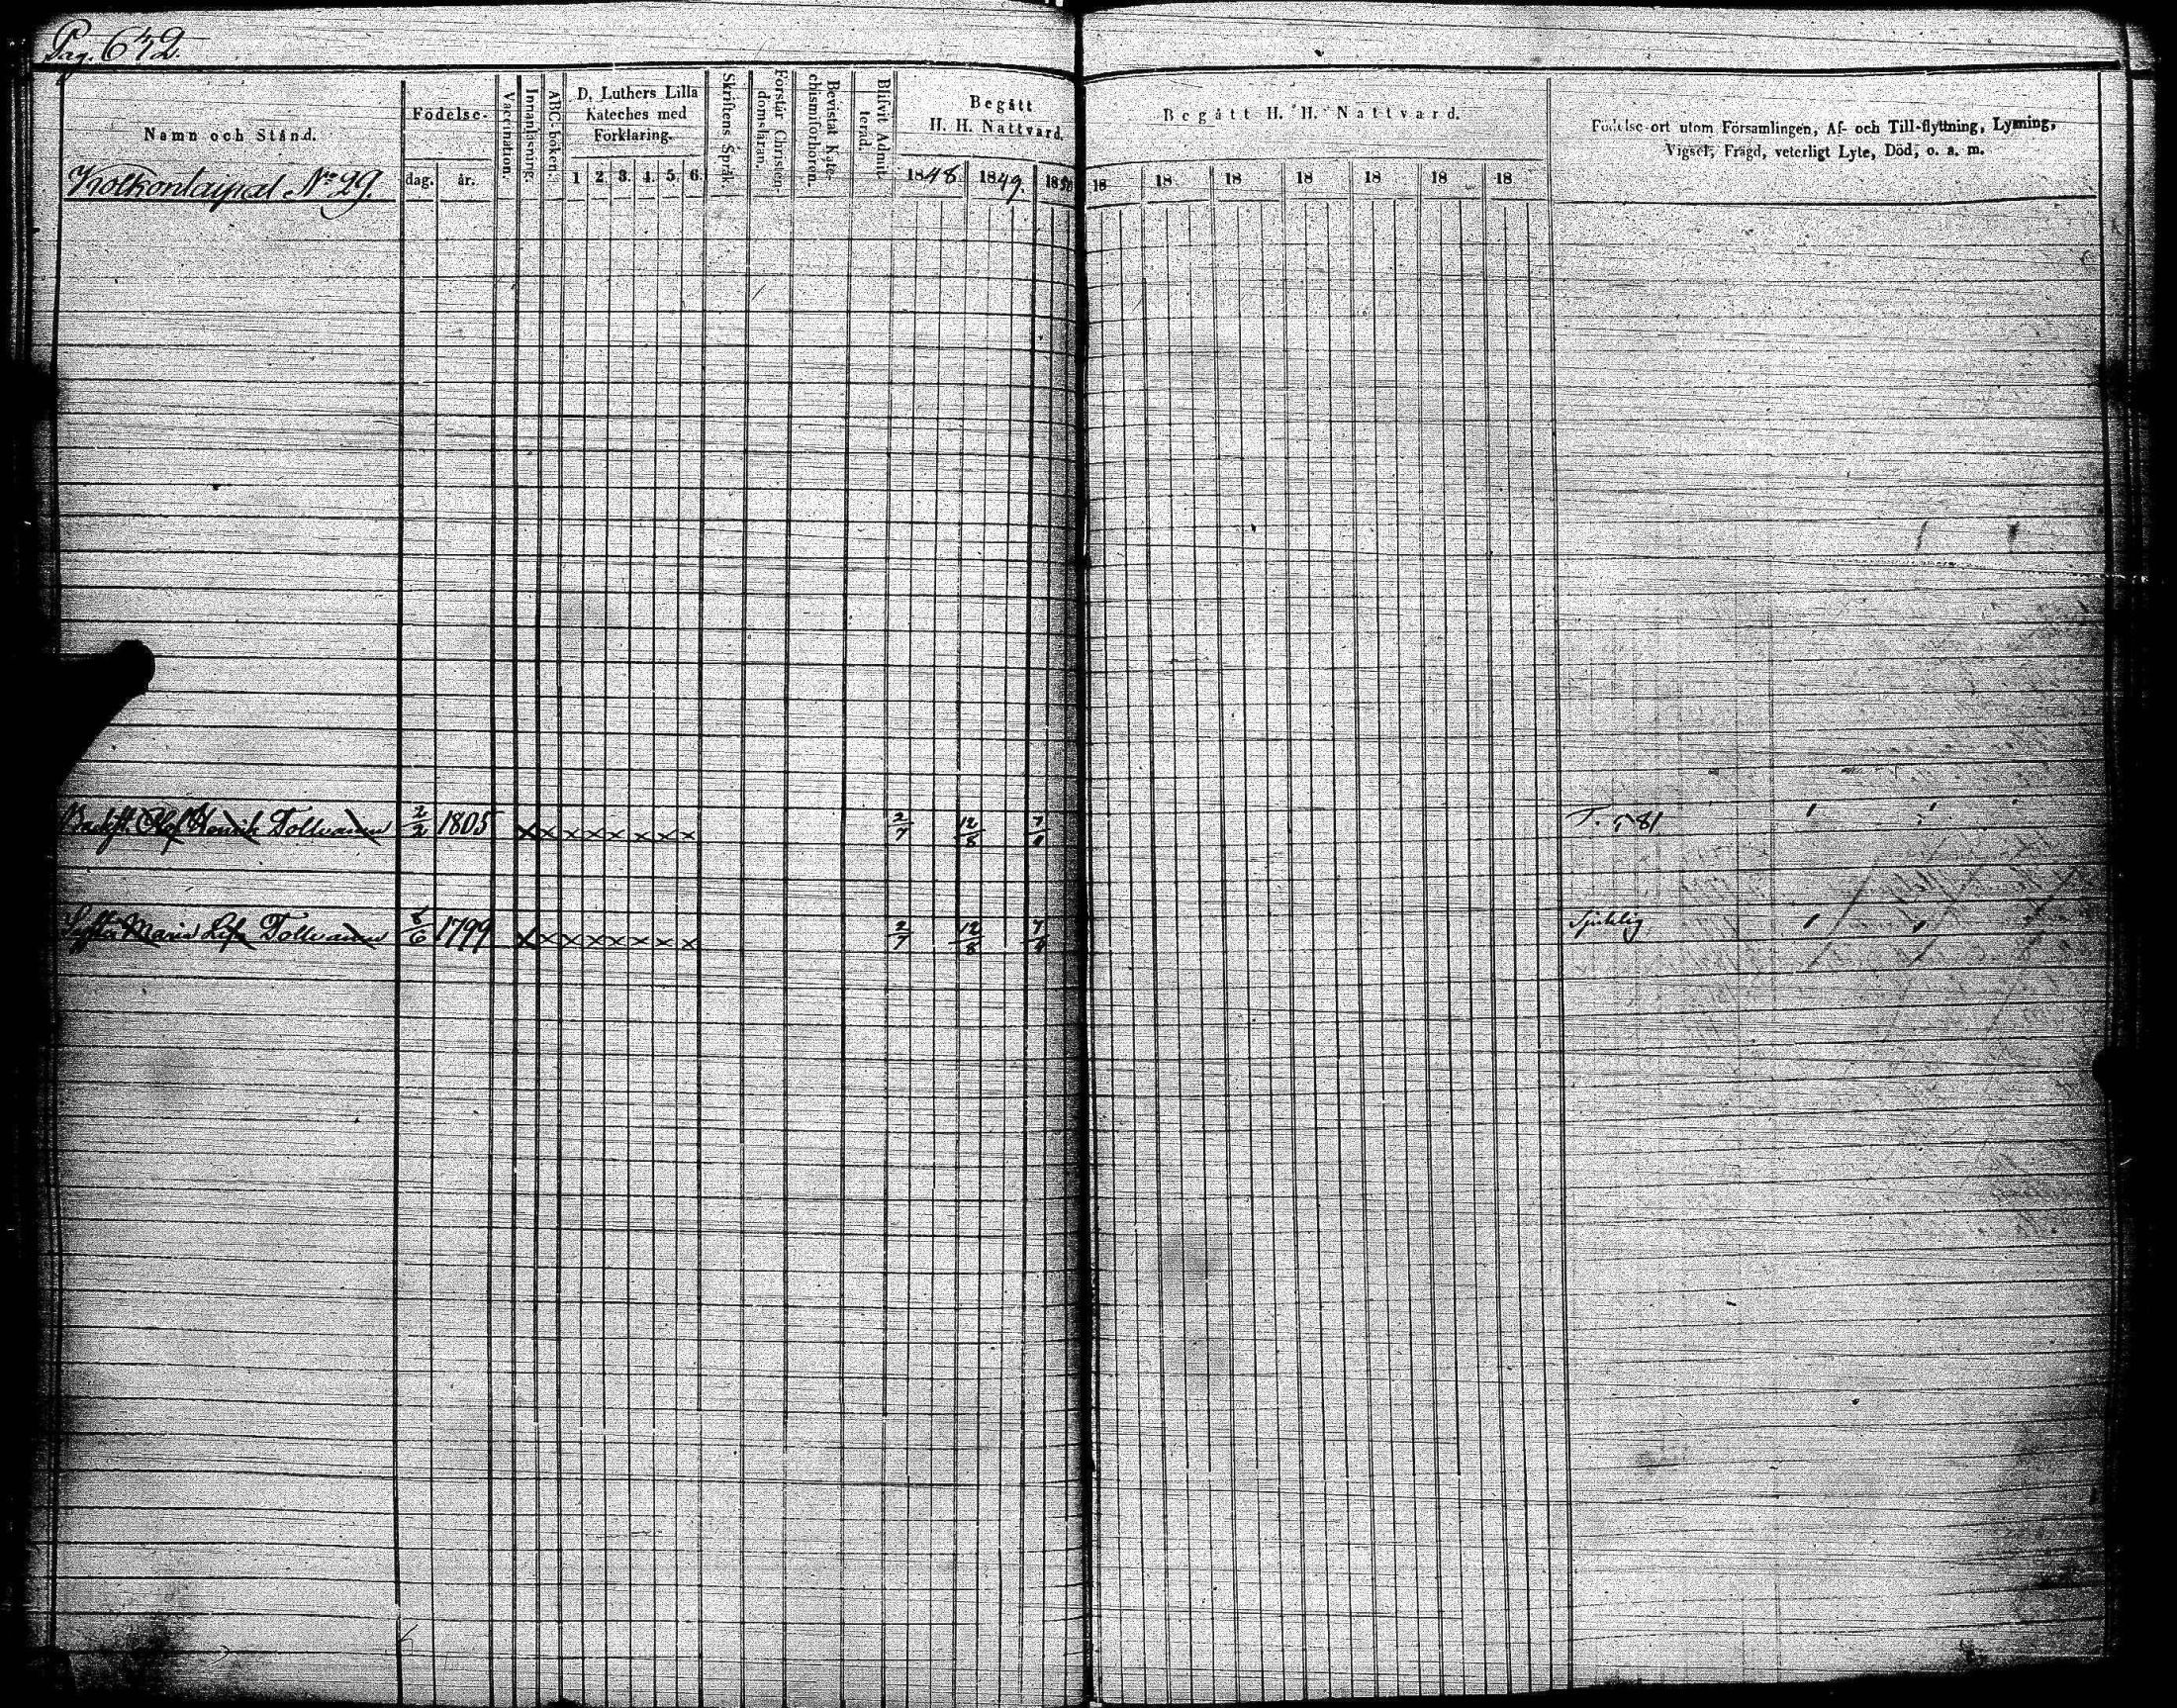 Pag. 642.
Namn och Stånd.
Kolkontaipal No 29.
Födelse-
dag. år.
Vaccination.
Innanläsning.
ABC-boken.
D. Luthers Lilla
Kateches med
Förklaring.
1 2. 3. 4. 5. 6.
Skriftens Språk.
Förstår Christen-
domsläran.
Bevistat Kate-
chismiförhören.
Blifvit Admit-
terad.
Begått
H. H. Nattvard.
1848. 1849. 1850
Begått H. H. Nattvard.
18 18 18 18 18 18 18
Födelse-ort utom Församlingen, Af- och Till-flyttning, Lysning,
Vigsel, Frägd, veterligt Lyte, Död, o. a. m.
Olof Henrik Tolvanen 2/2 1805 x x x x x x x x 2/7 12/8
Maria Tolvanen 8/6 1799 x x x x x x x x 2/7 12/8 Sjuklig